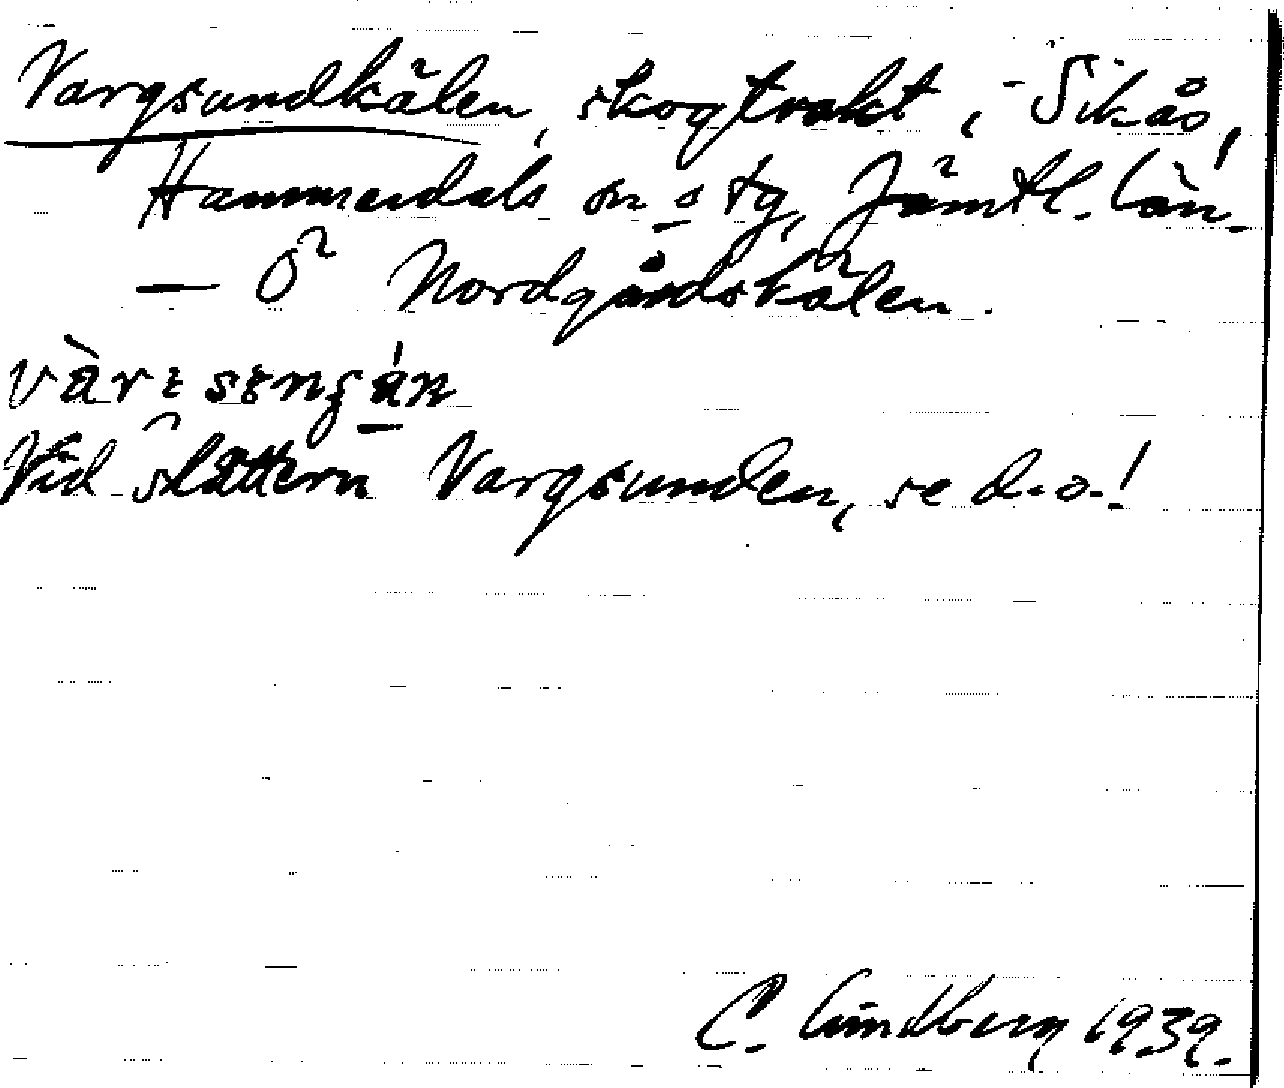 Vargsundkälen, skogtrakt i Sikås,
Hammerdals sn o tg, Jämtl. län.
— Ö Nordgårdskälen.
Vid slåttern Vargsunden, se d.o.!
C. Lundberg 1939.